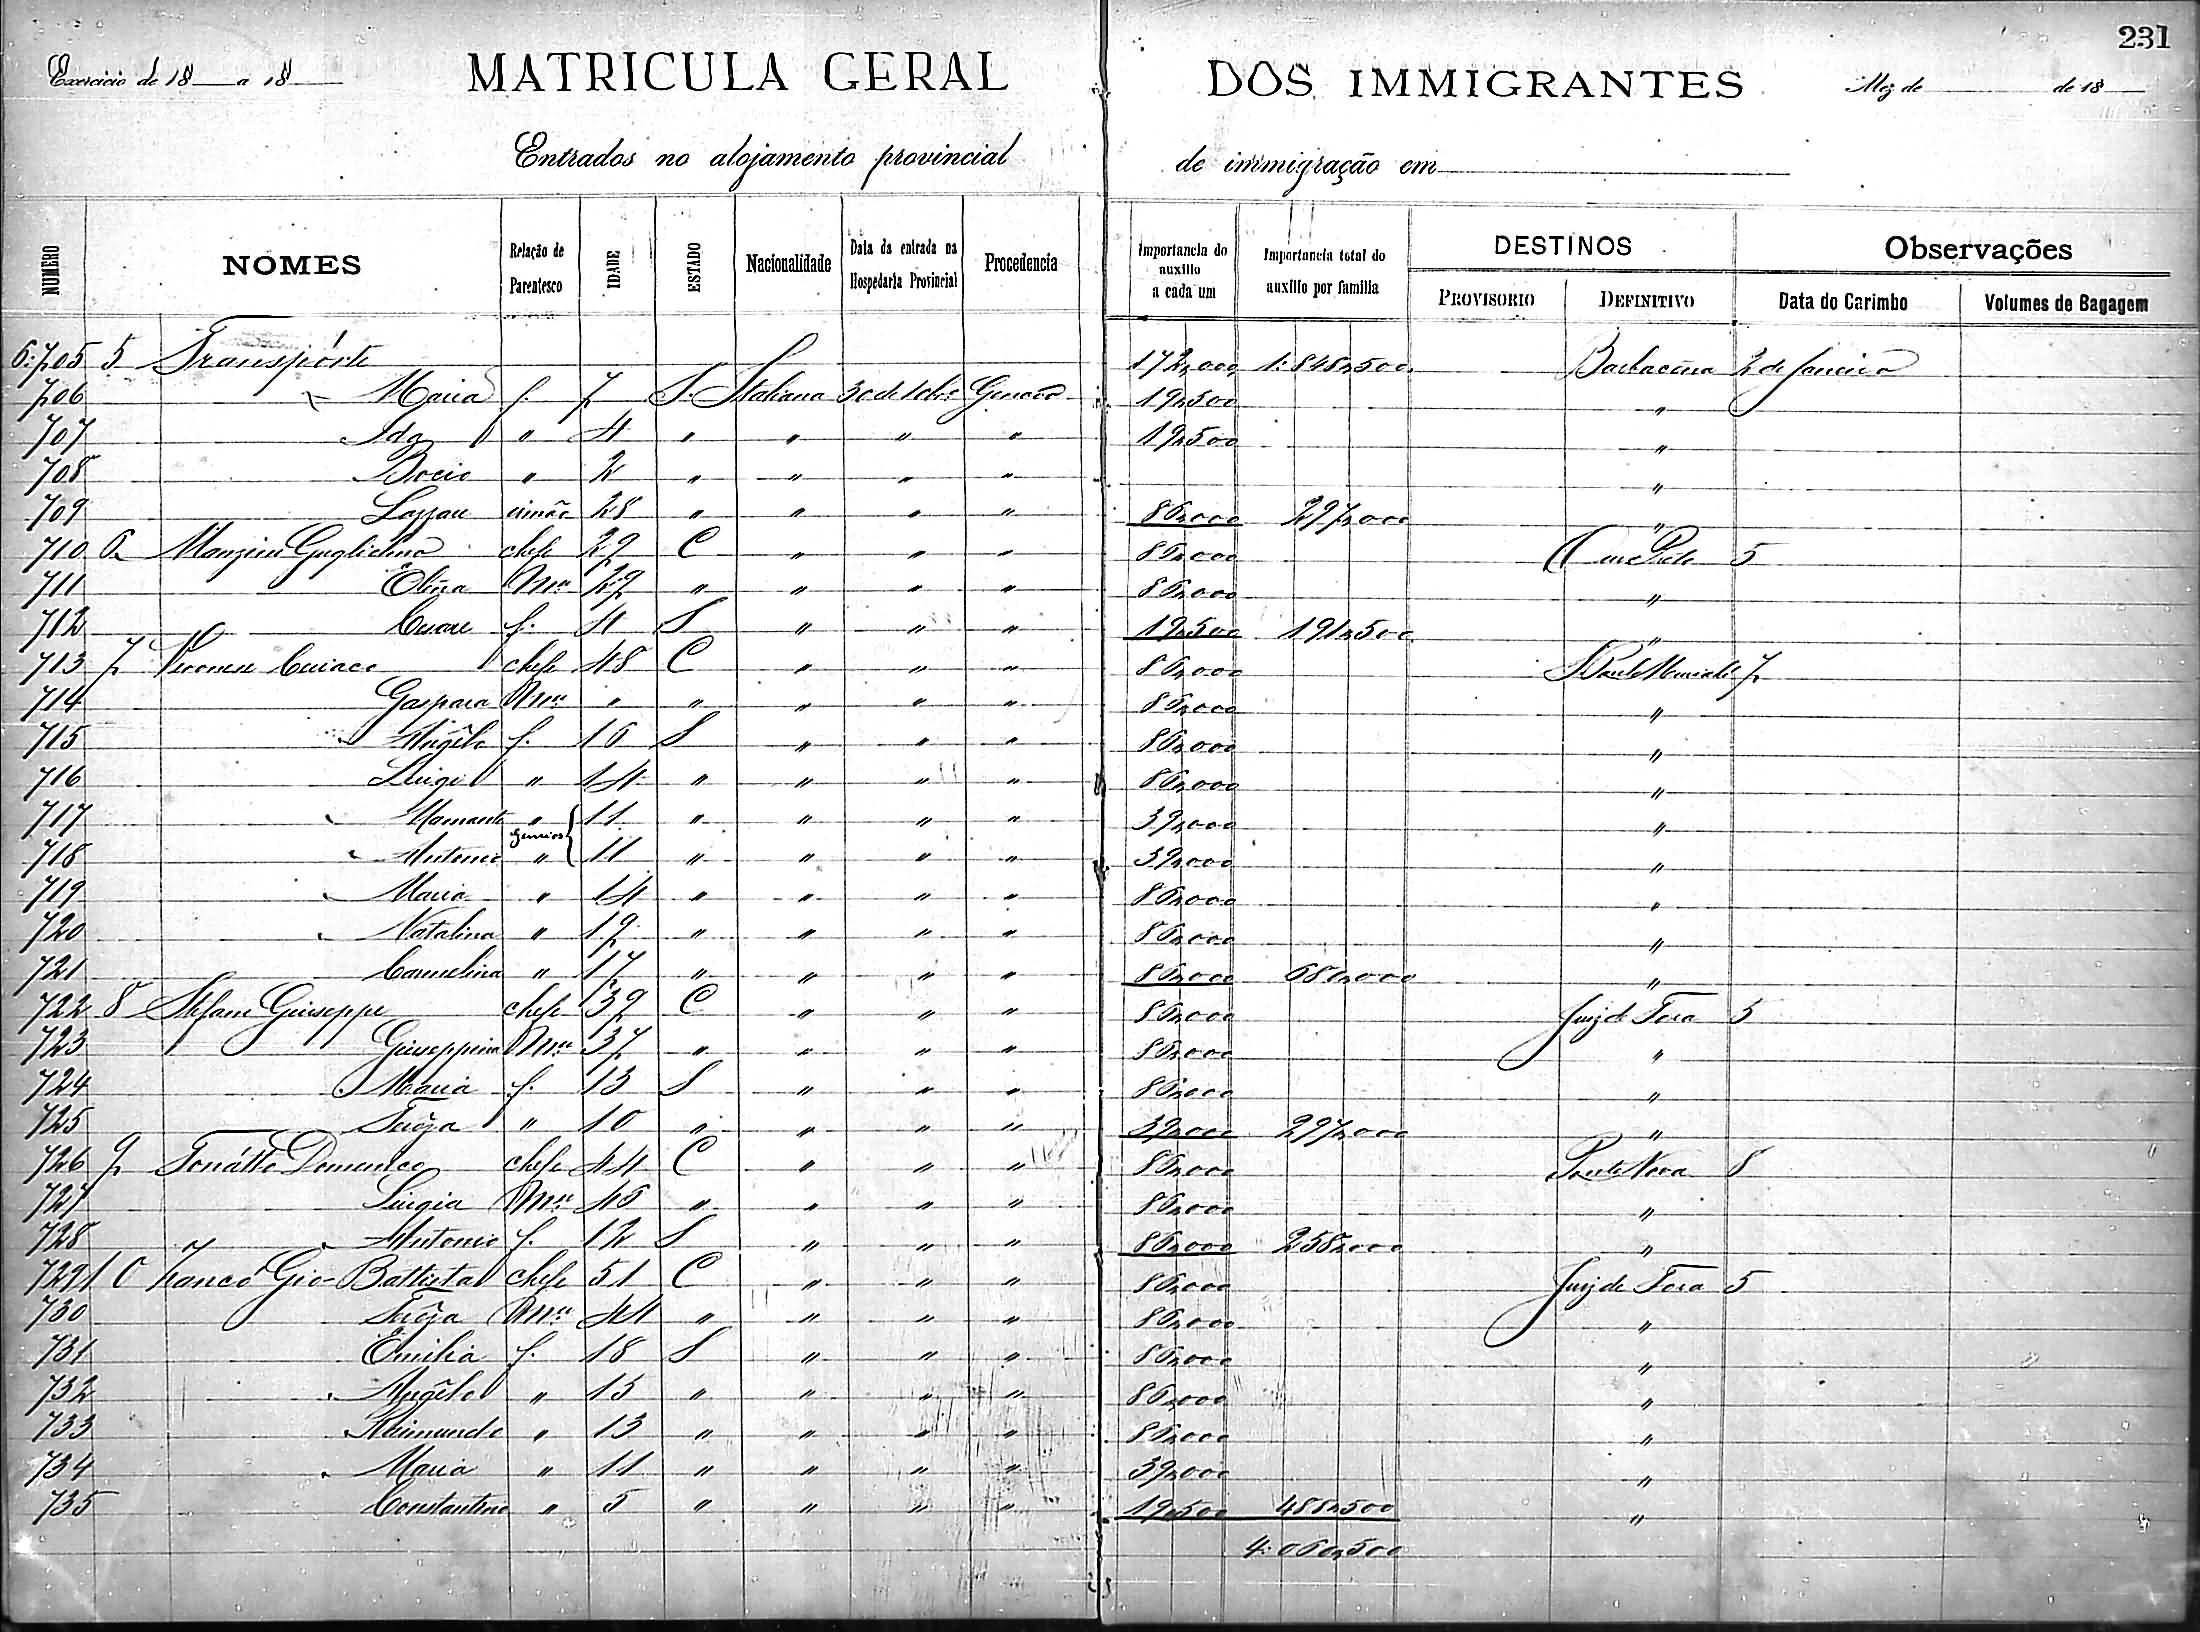 231
Exercicio de 18 a 18 MATRICULA GERAL DOS IMMIGRANTES Mez de de 18
Entrados no alojamento provincial de immigração em
NUMERO NOMES Relação de Parentesco IDADE ESTADO Nacionalidade Data da entrada na Hospedaria Provincial Procedencia Importancia do auxilio a cada um Importancia total do auxilio por familia DESTINOS PROVISORIO DEFINITIVO Observações Data do Carimbo Volumes de Bagagem
6:705 5 Transpórte 172,000 1:848,500 Barbacena 2 de Janeiro
706 " Maria f. 7 S. Italiana 30 de 10bro Genova 19,500 "
707 Ida " 4 " " " " 19,500 "
708 " 2 " " " " "
709 irmão 28 " " " " 86,000 297,000 "
710 6 Manzini Guglielmo chefe 29 C " " " 86,000 Ouro Preto 5
711 Mer 29 " " " " 86,000 "
712 Cesare f. 4 S " " " 19,500 191,500 "
713 7 chefe 48 C " " " 86,000 7
714 Gaspara Mer " " " " " 86,000 "
715 Angêlo f. 16 S " " " 86,000 "
716 Luigi " 14 " " " " 86,000 "
717 " 11 " " " " 39,000 "
gemeos
718 Antonio " 11 " " " " 39,000 "
719 Maria " 14 " " " " 86,000 "
720 Natalina " 19 " " " " 86,000 "
721 Carmelina " 17 " " " " 86,000 680,000 "
722 8 Stefani Giuseppe chefe 39 C " " " 86,000 Juiz de Fora 5
723 Giuseppina Mer 37 " " " " 86,000 "
724 Maria f. 13 S " " " 86,000 "
725 " 10 " " " " 39,000 297,000 "
726 9 Domenico chefe 44 C " " " 86,000 Ponte Nova 8
727 Luigia Mer 45 " " " " 86,000 "
728 Antonio f. 12 S " " " 86,000 258,000 "
729 10 Gio-Battista chefe 51 C " " " 86,000 Juiz de Fora 5
730 Mer 44 " " " " 86,000 "
731 Emilia f. 18 S " " " 86,000 "
732 Angêlo " 15 " " " " 86,000 "
733 Raimundo " 13 " " " " 86,000 "
734 Maria " 11 " " " " 39,000 "
735 Constantino " 5 " " " " 19,500 488,500 "
4:060,500